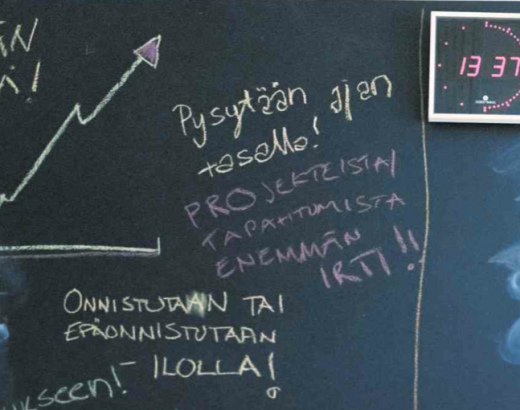 ÄN
Ä!
Pysytään ajan
tasalla!
PROJEKTEISTA/
TAPAHTUMISTA
ENEMMÄN
IRTI!!
13 37
ONNISTUTAAN TAI
EPÄONNISTUTAAN
ILOLLA!
ukseen!